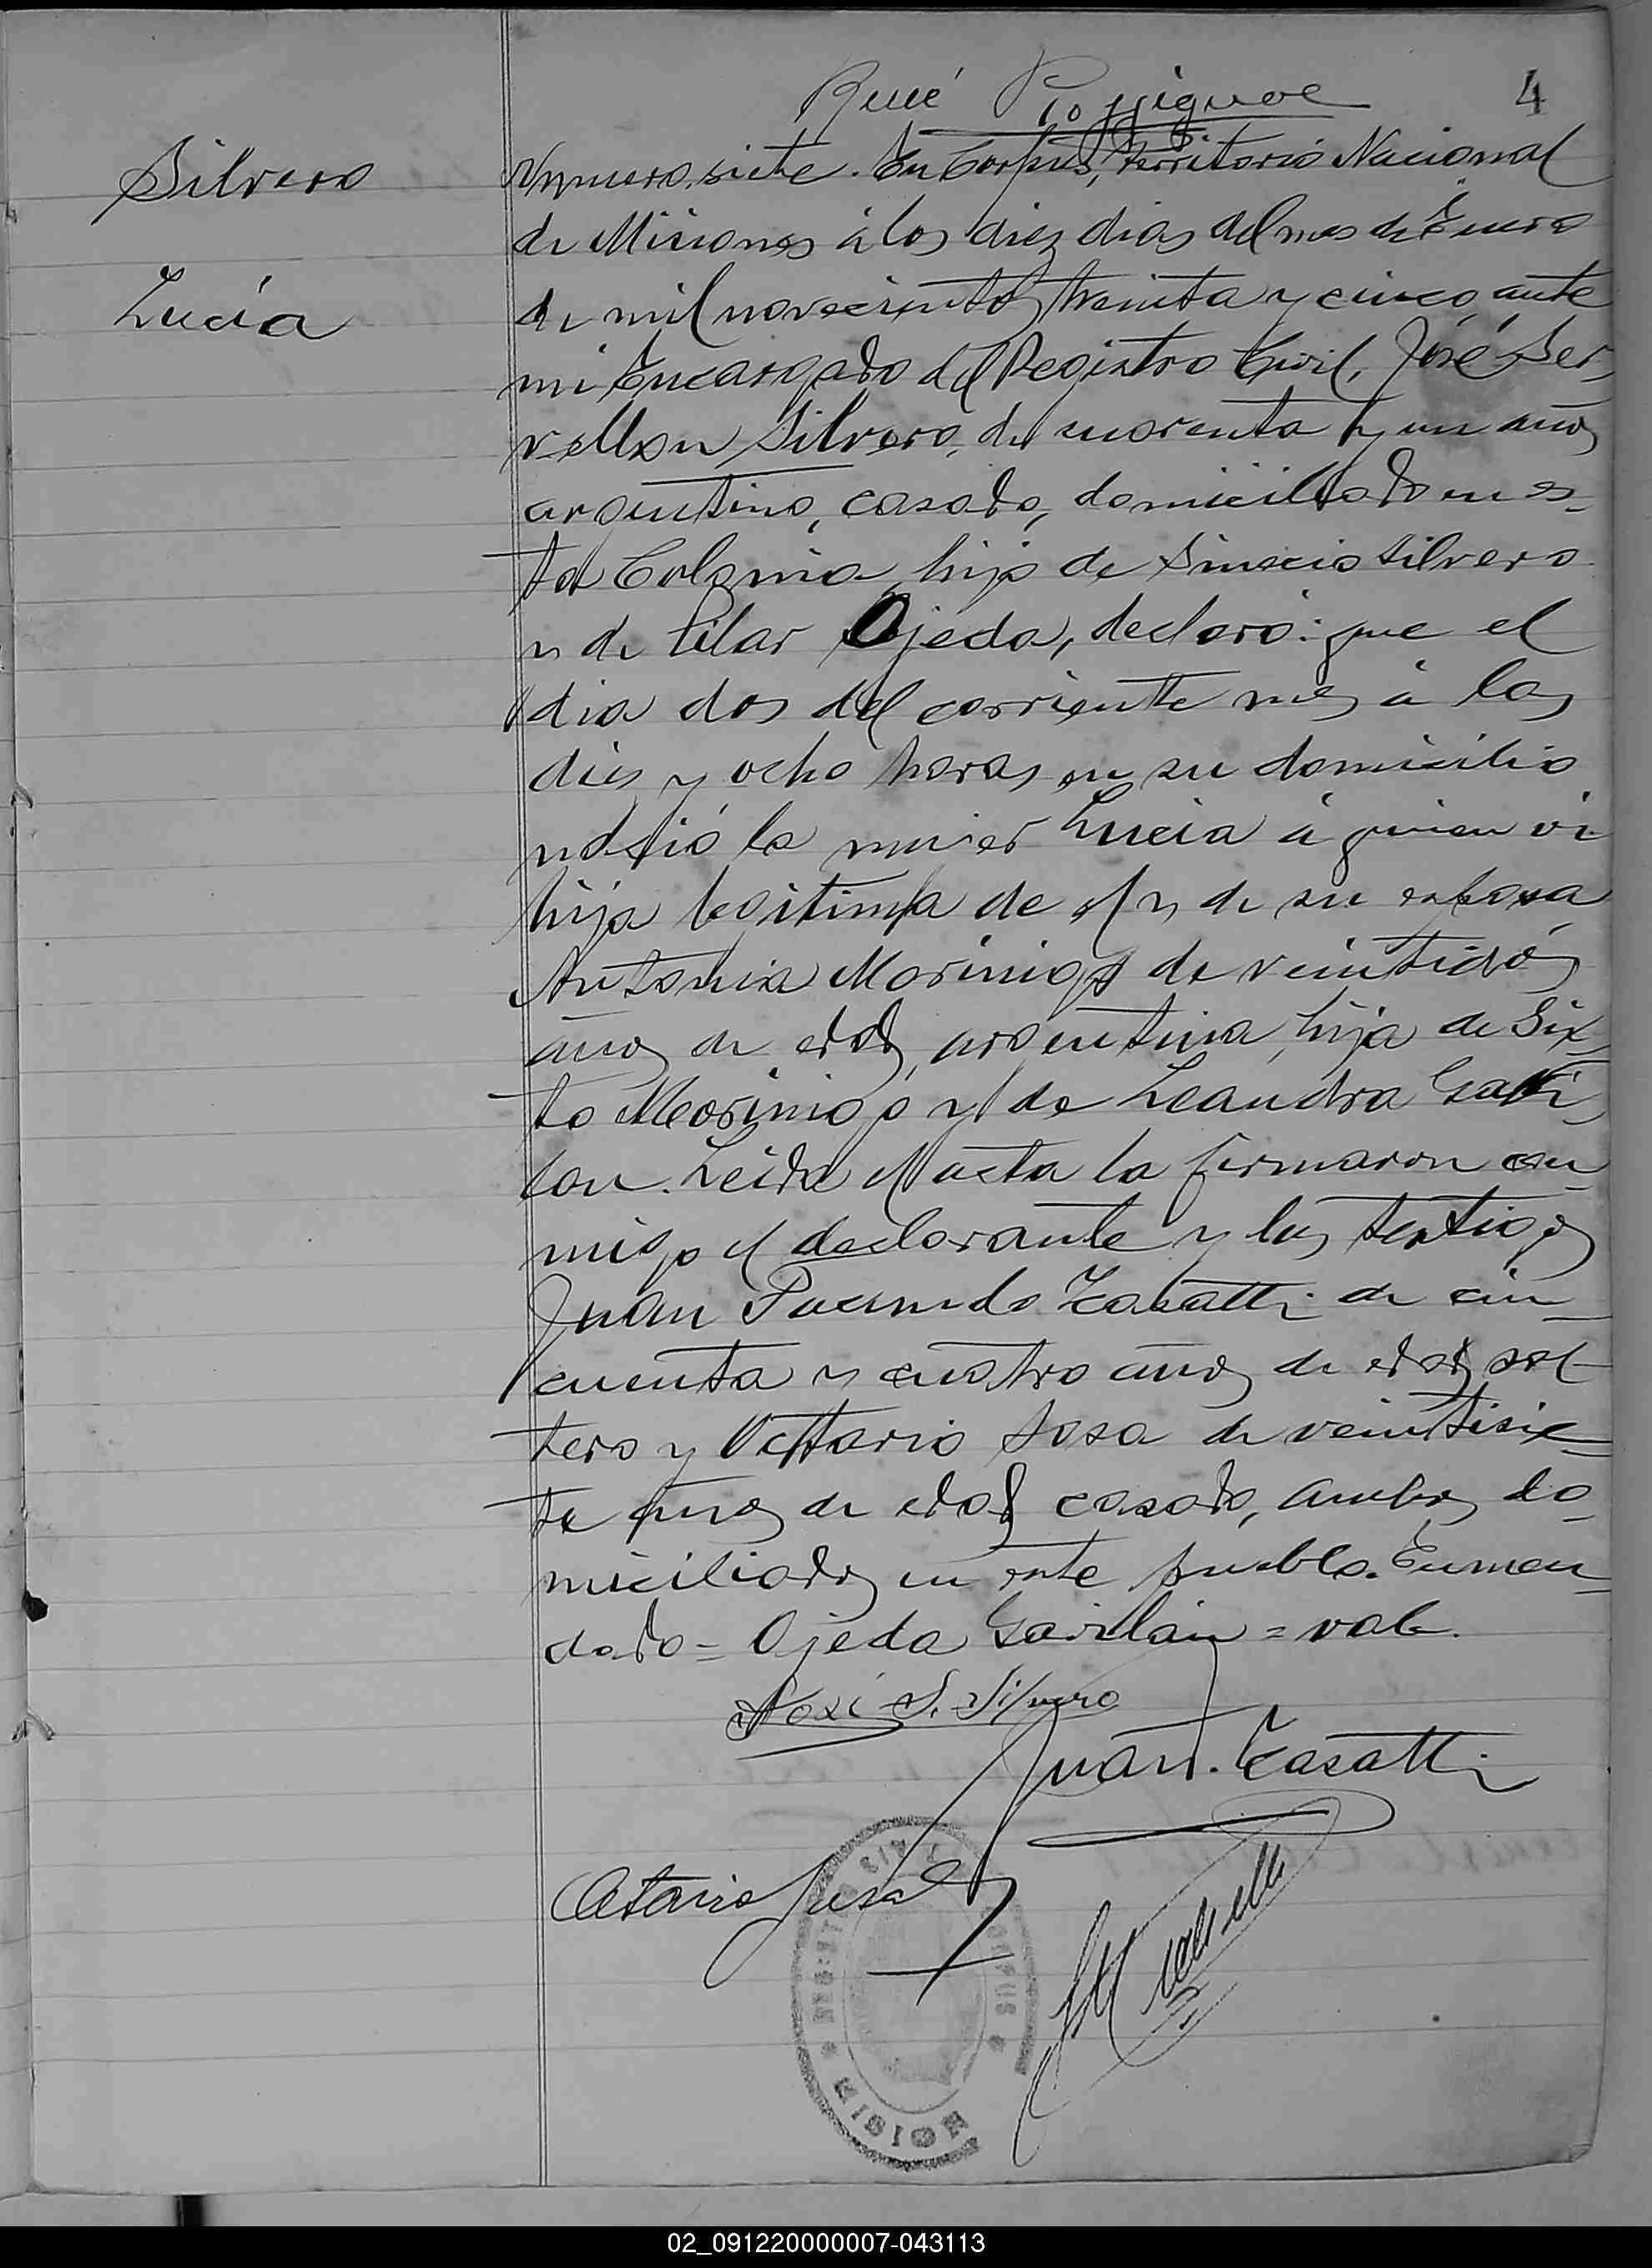 René
4
Silvero
Lucía
Número siete. En Corpus, Territorio Nacional
de Misiones á los diez dias del mes de Enero
de mil novecientos treinta y cinco, ante
mi Encargado del Registro Civil, José Ser-
vellon Silvero, de cuarenta y un años
argentino, casado, domiciliado en es-
ta Colonia, hijo de Sinecio Silvero
y de Pilar Ojeda, declaró: que el
dia dos del corriente mes á las
dies y ocho horas en su domicilio
nació la mujer Lucia á quien vi
hija legitima de él y de su esposa
Antonia Morinigo de veintidós
años de edad, argentina, hija de Six-
to Morinigo y de Leandra Gavi-
lan. Leida el acta la firmaron con-
migo el declarante y los testigos
Juan Facundo Casatti de cin-
cuenta y cuatro años de edad sol-
tero y Octtario Sosa de veintisie-
te años de edad casado, ambos do-
miciliados en este pueblo. Enmen-
dado = Ojeda Gavilán = vale.
José S. Silvero
Juan F. Casatti
Octario Sosa
REGISTRO CIVIL CORPUS * MISION
02_091220000007-043113